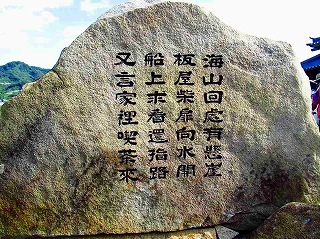 海山回処有悲崖
板屋柴扉向水開
船上求看還指路
又言家裡喫茶來